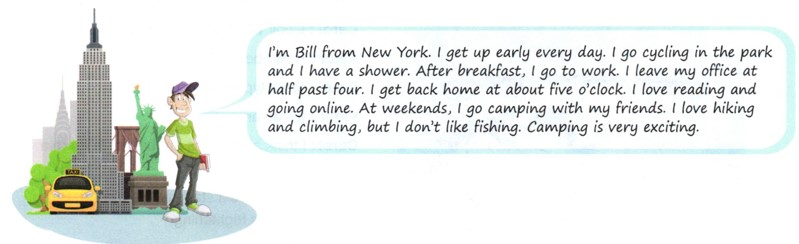 I'm Bill from New York. I get up early every day. I go cycling in the park
and I have a shower. After breakfast, I go to work. I leave my office at
half past four. I get back home at about five o'clock. I love reading and
going online. At weekends, I go camping with my friends. I love hiking
and climbing, but I don't like fishing. Camping is very exciting.
TAXI